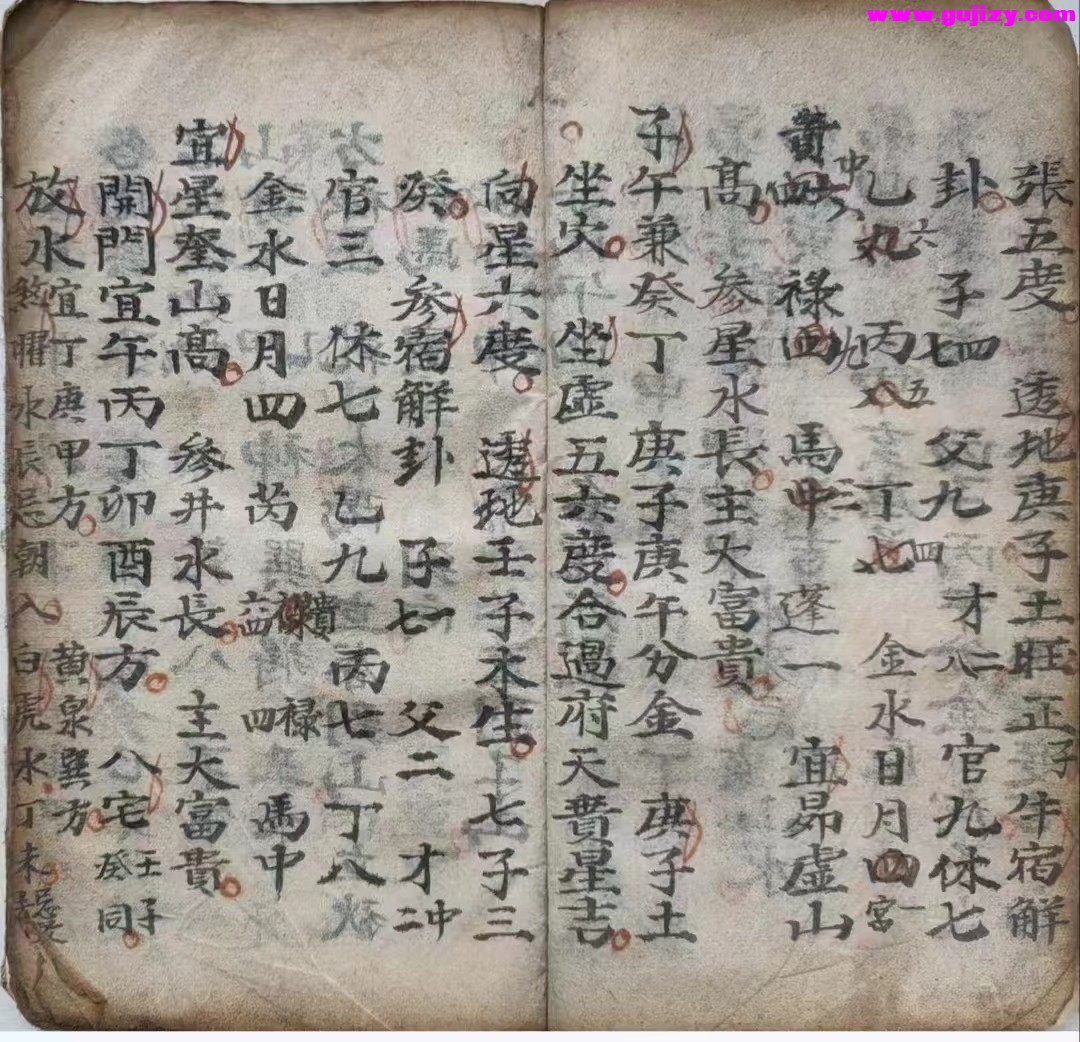 www.gujizy.com
張五度 透地庚子土旺正子 牛宿解
卦 子七四 父九四 才八二 官九休七
乙九六 丙八五 丁七 金水日月四宮一
貴四中六 祿四九 馬中二 蓬一 宜昴虛山
高 參星水長主大富貴
子午兼癸丁 庚子庚午分金 庚子土
坐穴 坐虛五六度合過府天貴星吉
向星六度 透地壬子木生 七子三
癸 參宿解卦 子七一 父二 才二中
官三 休七 乙九 丙七 丁八
金水日月四 芮 六四 祿四 馬中
宜星奎山高 參井水長 主大富貴
開門宜午丙丁卯酉辰方 八宅壬子癸同
放水宜丁庚甲方 黃泉巽方
煞曜水辰忌朝入白虎水丁未